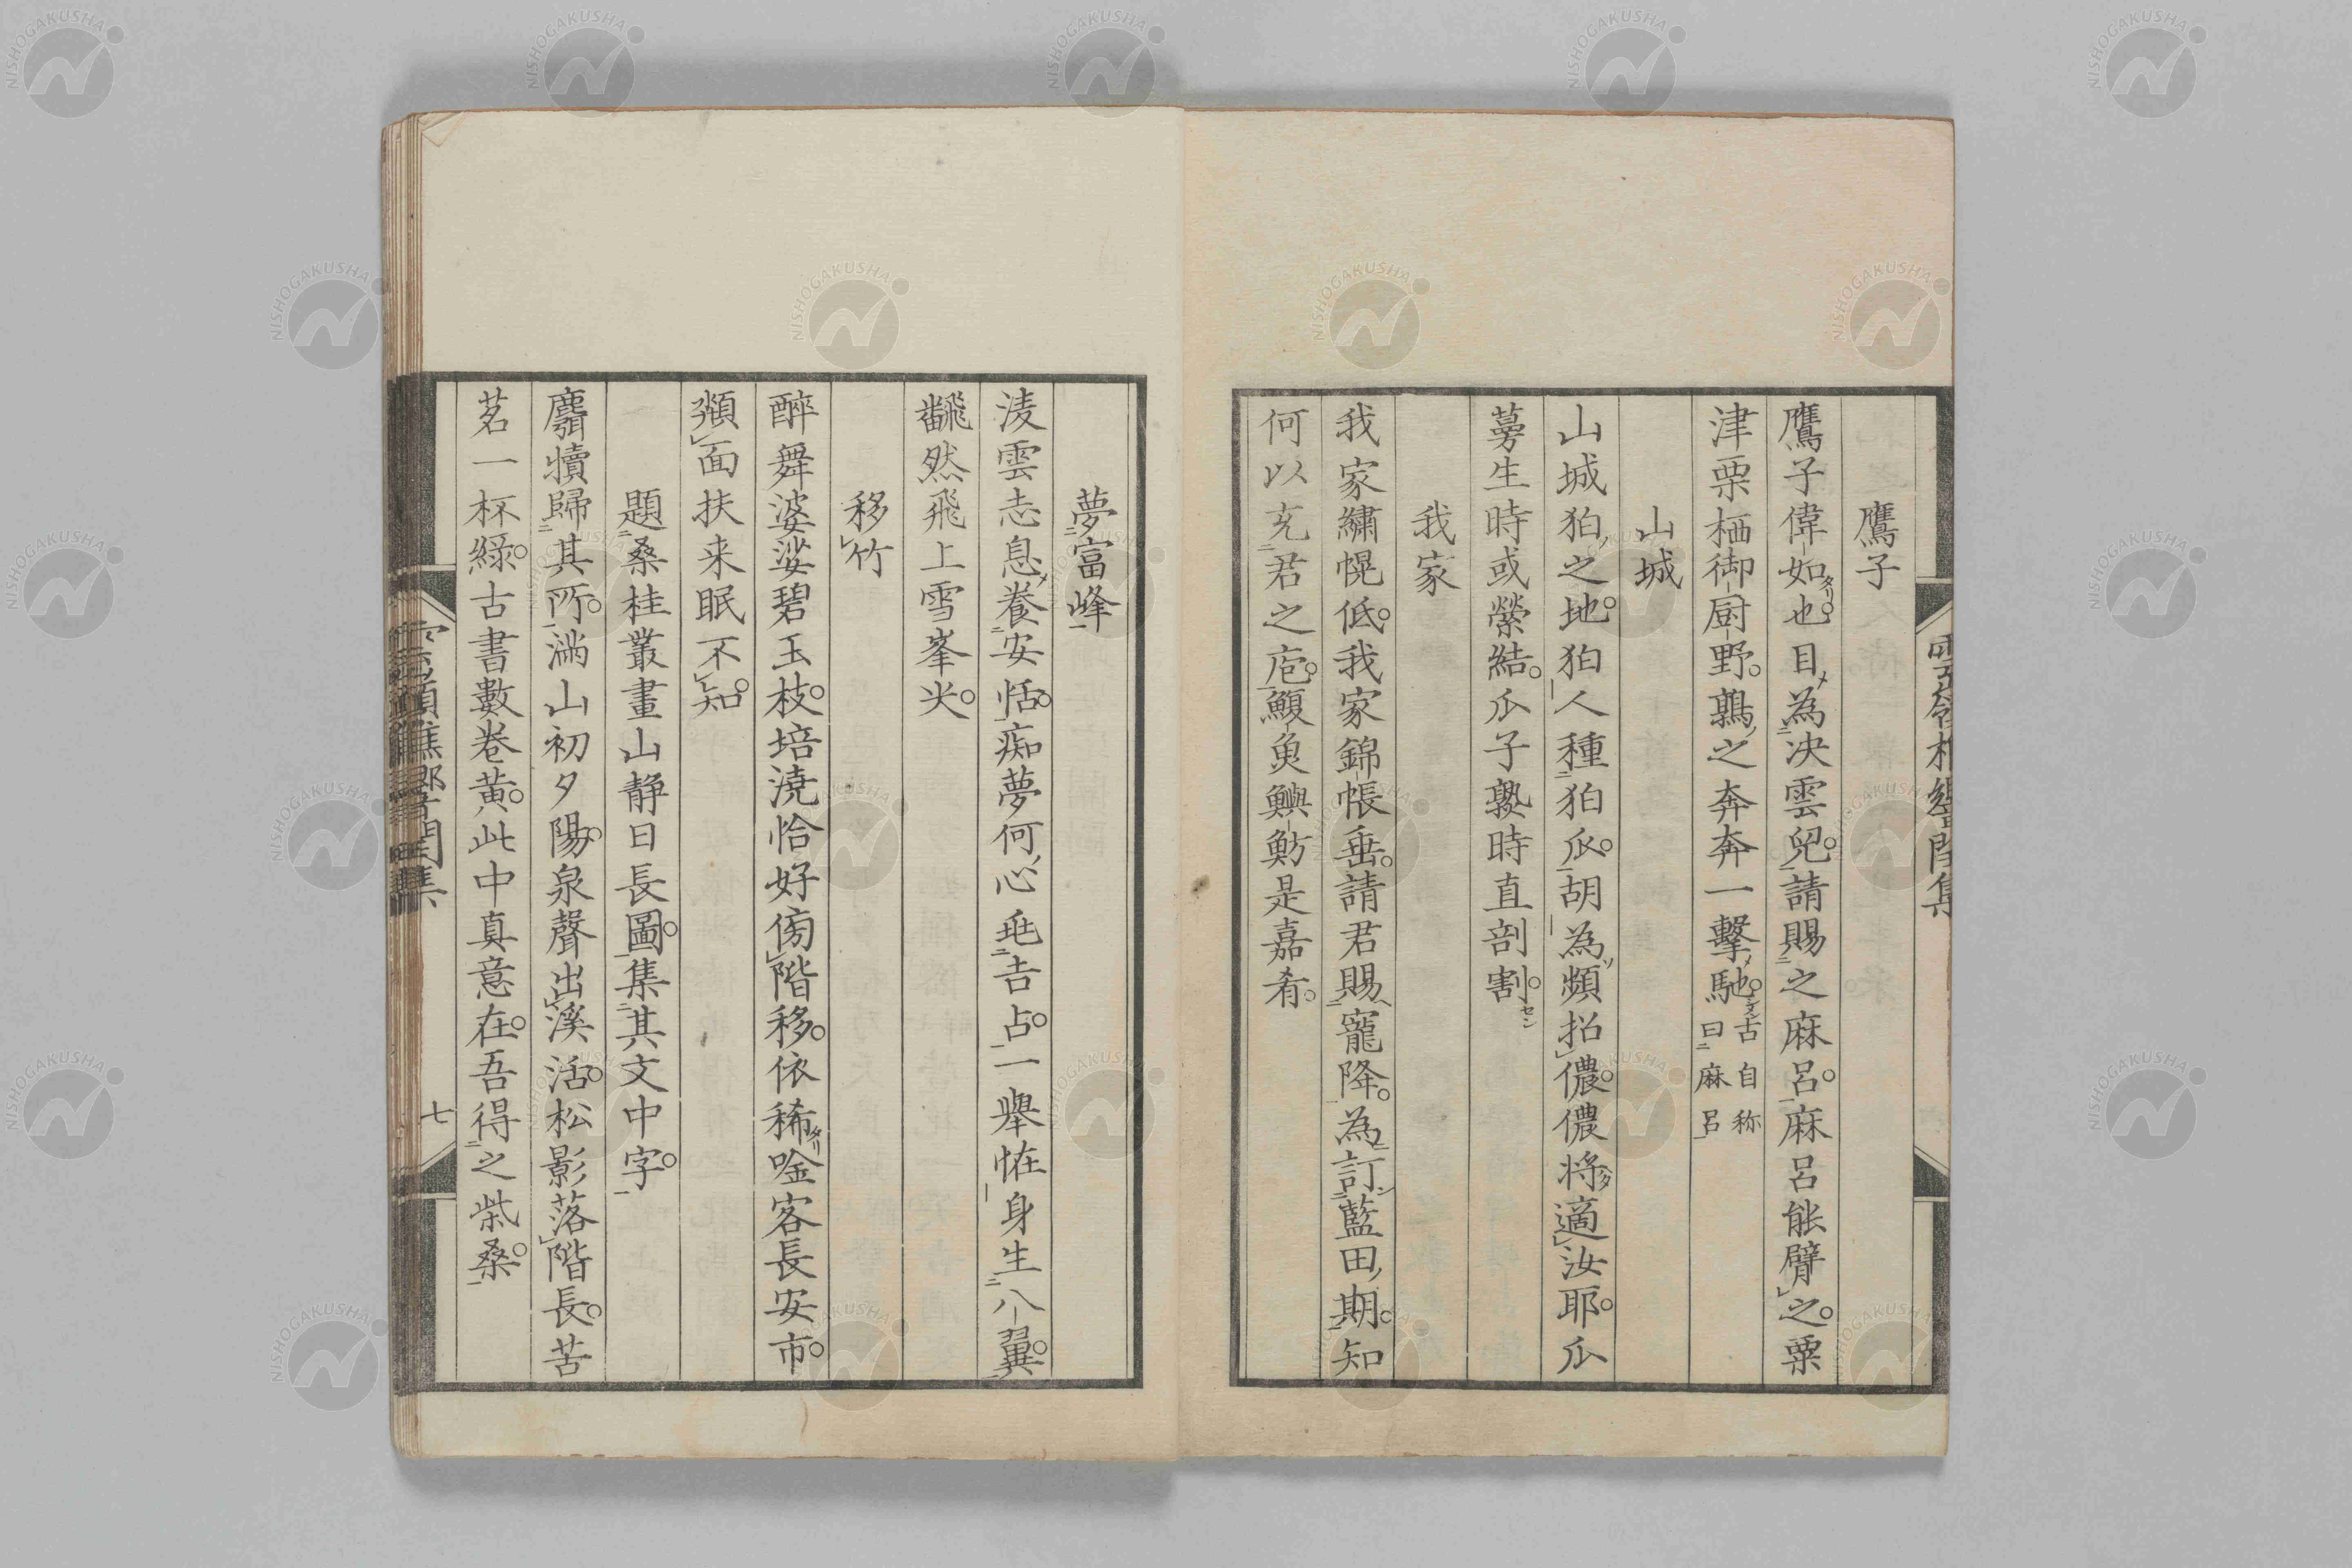 鷹子
鷹子偉如也。目為决雲兒。請賜之麻呂。麻呂能臂之。粟
津栗栖御厨野。鶉之奔奔一擊馳。古自称曰麻呂
山城
山城狛之地。狛人種狛瓜。胡為頻招儂。儂將適汝耶。瓜
蔓生時或縈結。瓜子熟時直剖割。
我家
我家繡幌低。我家錦帳垂。請君賜寵降。為訂藍田期。知
何以充君之庖。鰒魚鱮魴是嘉肴。
夢富峰
淩雲志息養安恬。痴夢何心乩吉占。一擧恠身生八翼。
飜然飛上雪峯尖。
移竹
醉舞婆娑碧玉枝。培澆恰好傍階移。依稀唫客長安市。
頮面扶来眠不知。
題桑桂叢畫山静日長圖。集其文中字。
麛犢歸其所。満山初夕陽。泉聲出溪活。松影落階長。苦
茗一杯綠。古書數卷黄。此中真意在。吾得之柴桑。
七